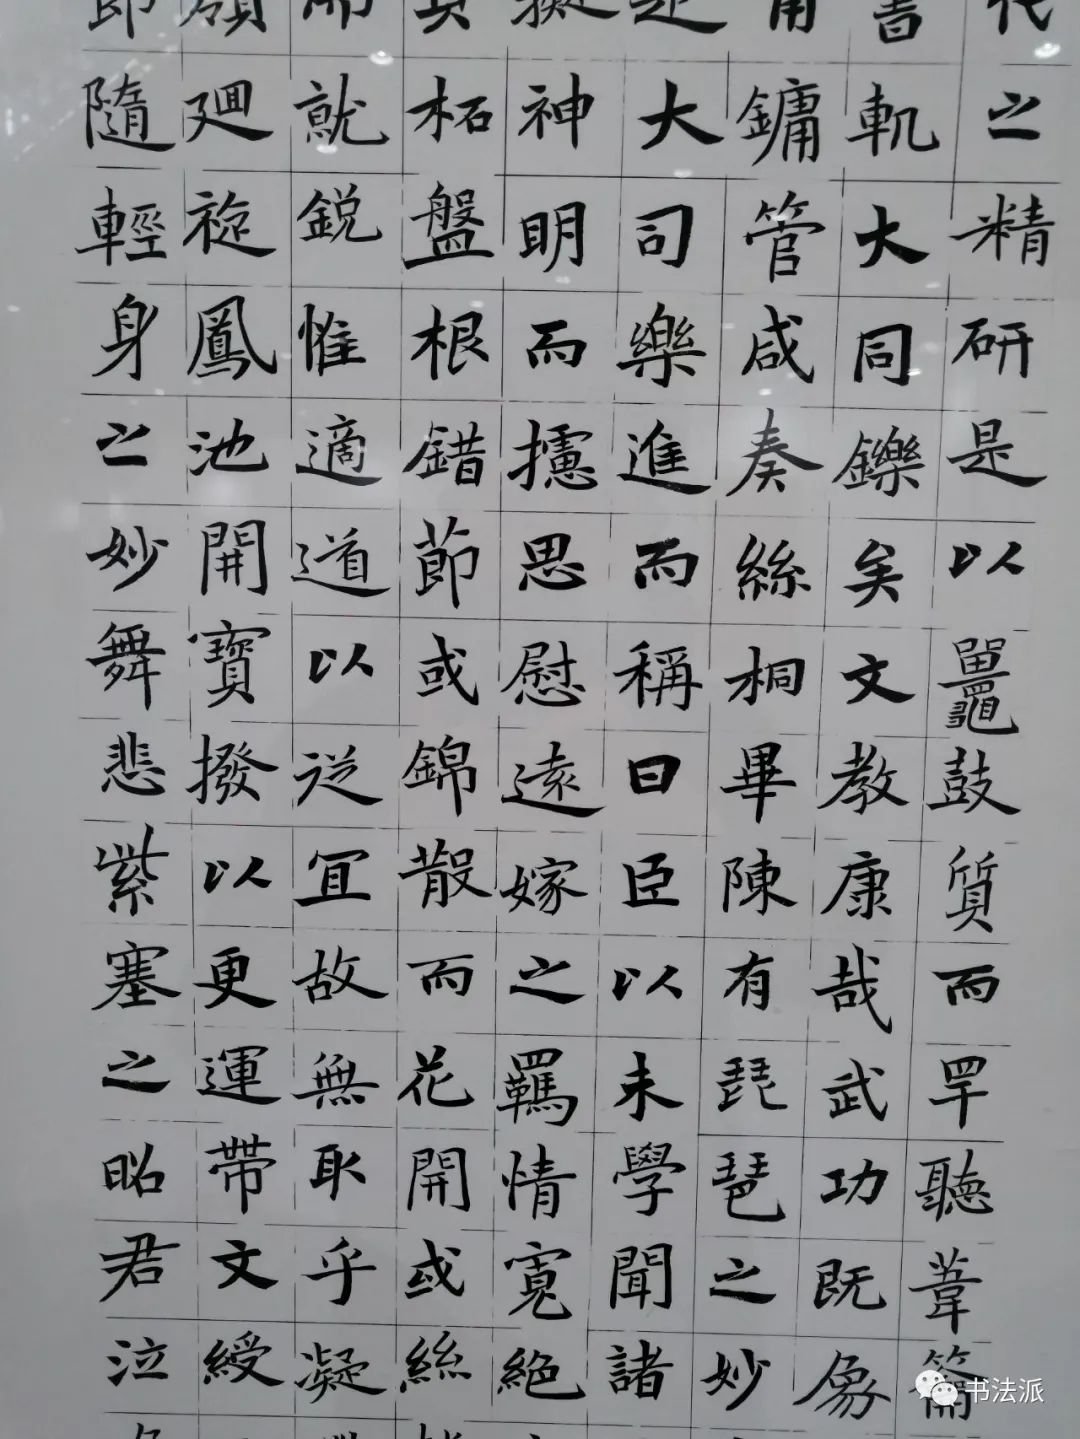 代之精研是以鼉鼓質而罕聽葦籥
書軌大同鑠矣文教康哉武功既象
鏞管咸奏絲桐畢陳有琵琶之妙
大司樂進而稱曰臣以未學聞諸
神明而攄思慰遠嫁之羈情寬絕
柘盤根錯節或錦散而花開或絲
而就銳惟適道以從宜故無取乎凝
廻旋鳳池開寶撥以更運帶文綬
隨輕身之妙舞悲紫塞之昭君泣
书法派